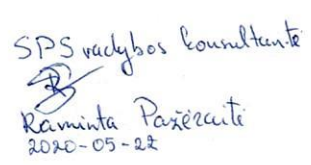 SPS vadybos konsultantė
Raminta Pažėraitė
2020-05-22